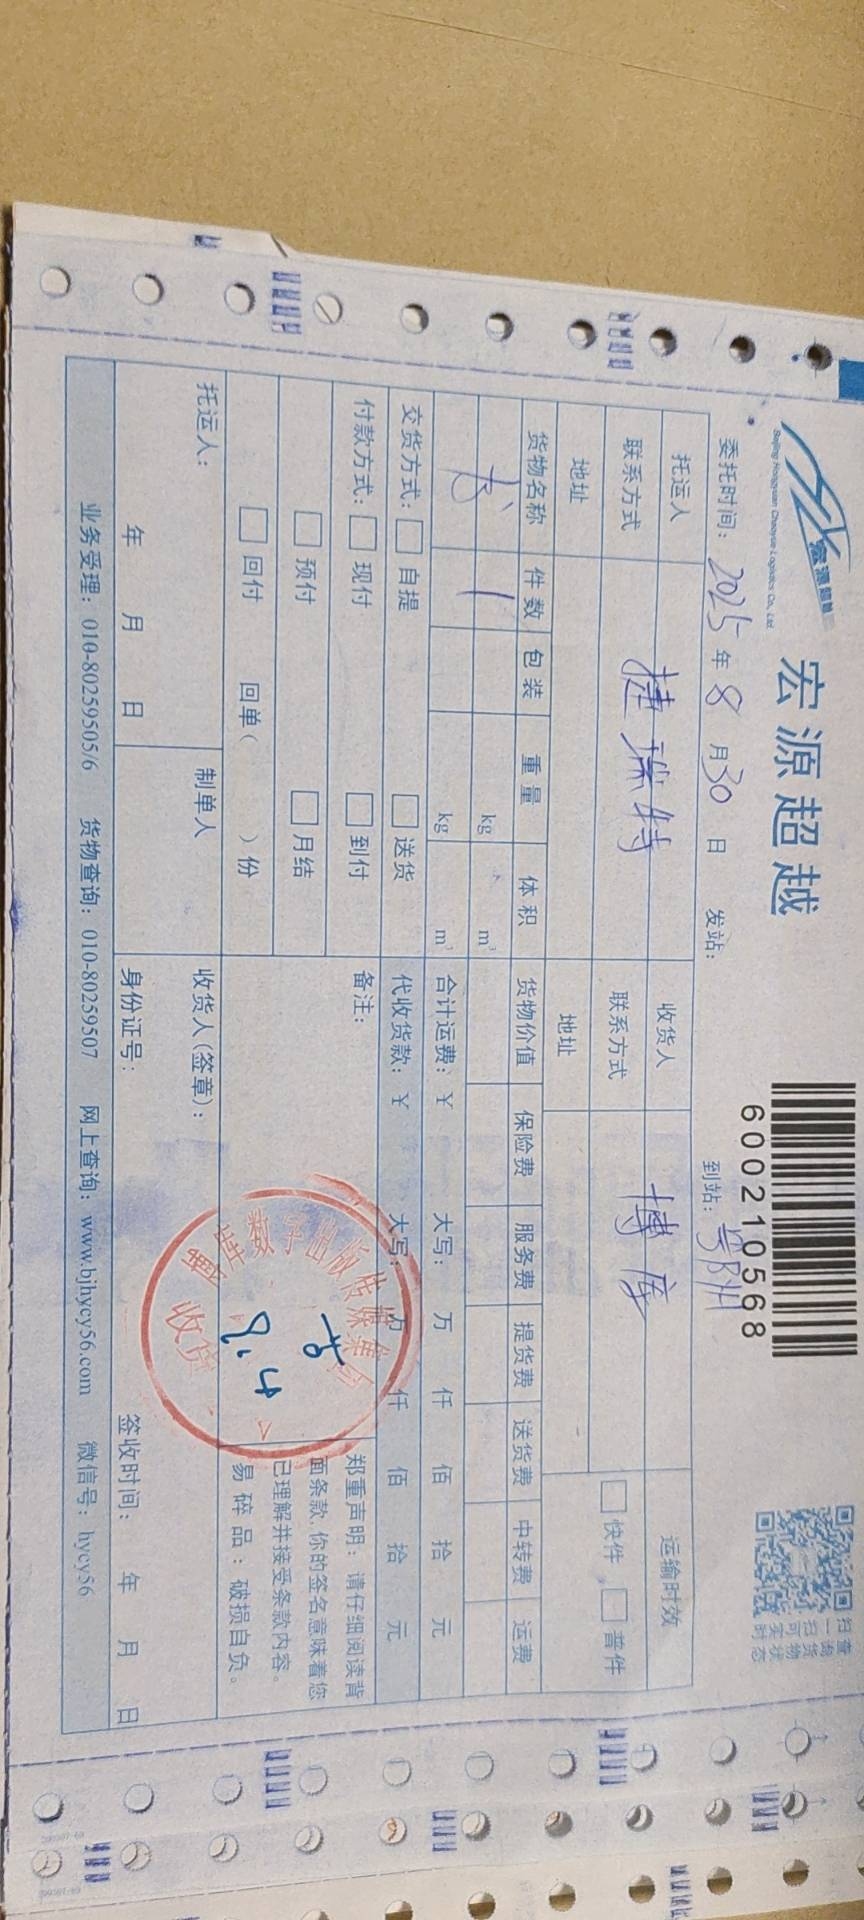 宏源超越
Beijing Hongyuan Chaoyue Logistics Co., Ltd
宏源超越
600210568
扫一扫可实时
查询货物状态
委托时间: 2025年8月30日 发站: 到站:
托运人 捷琳特 收货人 博库 运输时效
联系方式 联系方式 快件 普件
地址 地址
货物名称 件数 包装 重量 体积 货物价值 保险费 服务费 提货费 送货费 中转费 运费
书 1 kg m³
kg m³ 合计运费: ¥ 大写: 万 仟 佰 拾 元
交货方式: 自提 送货 代收货款: ¥ 大写: 万 仟 佰 拾 元
付款方式: 现付 到付
预付 月结
回付 回单( )份
备注:
郑重声明: 请仔细阅读背
面条款,你的签名意味着您
已理解并接受条款内容。
易碎品: 破损自负。
博库数字出版传媒集团
收货
9.4
托运人: 制单人 收货人(签章):
年 月 日 身份证号: 签收时间: 年 月 日
业务受理: 010-80259505/6 货物查询: 010-80259507 网上查询: www.bjhycy56.com 微信号: hycy56